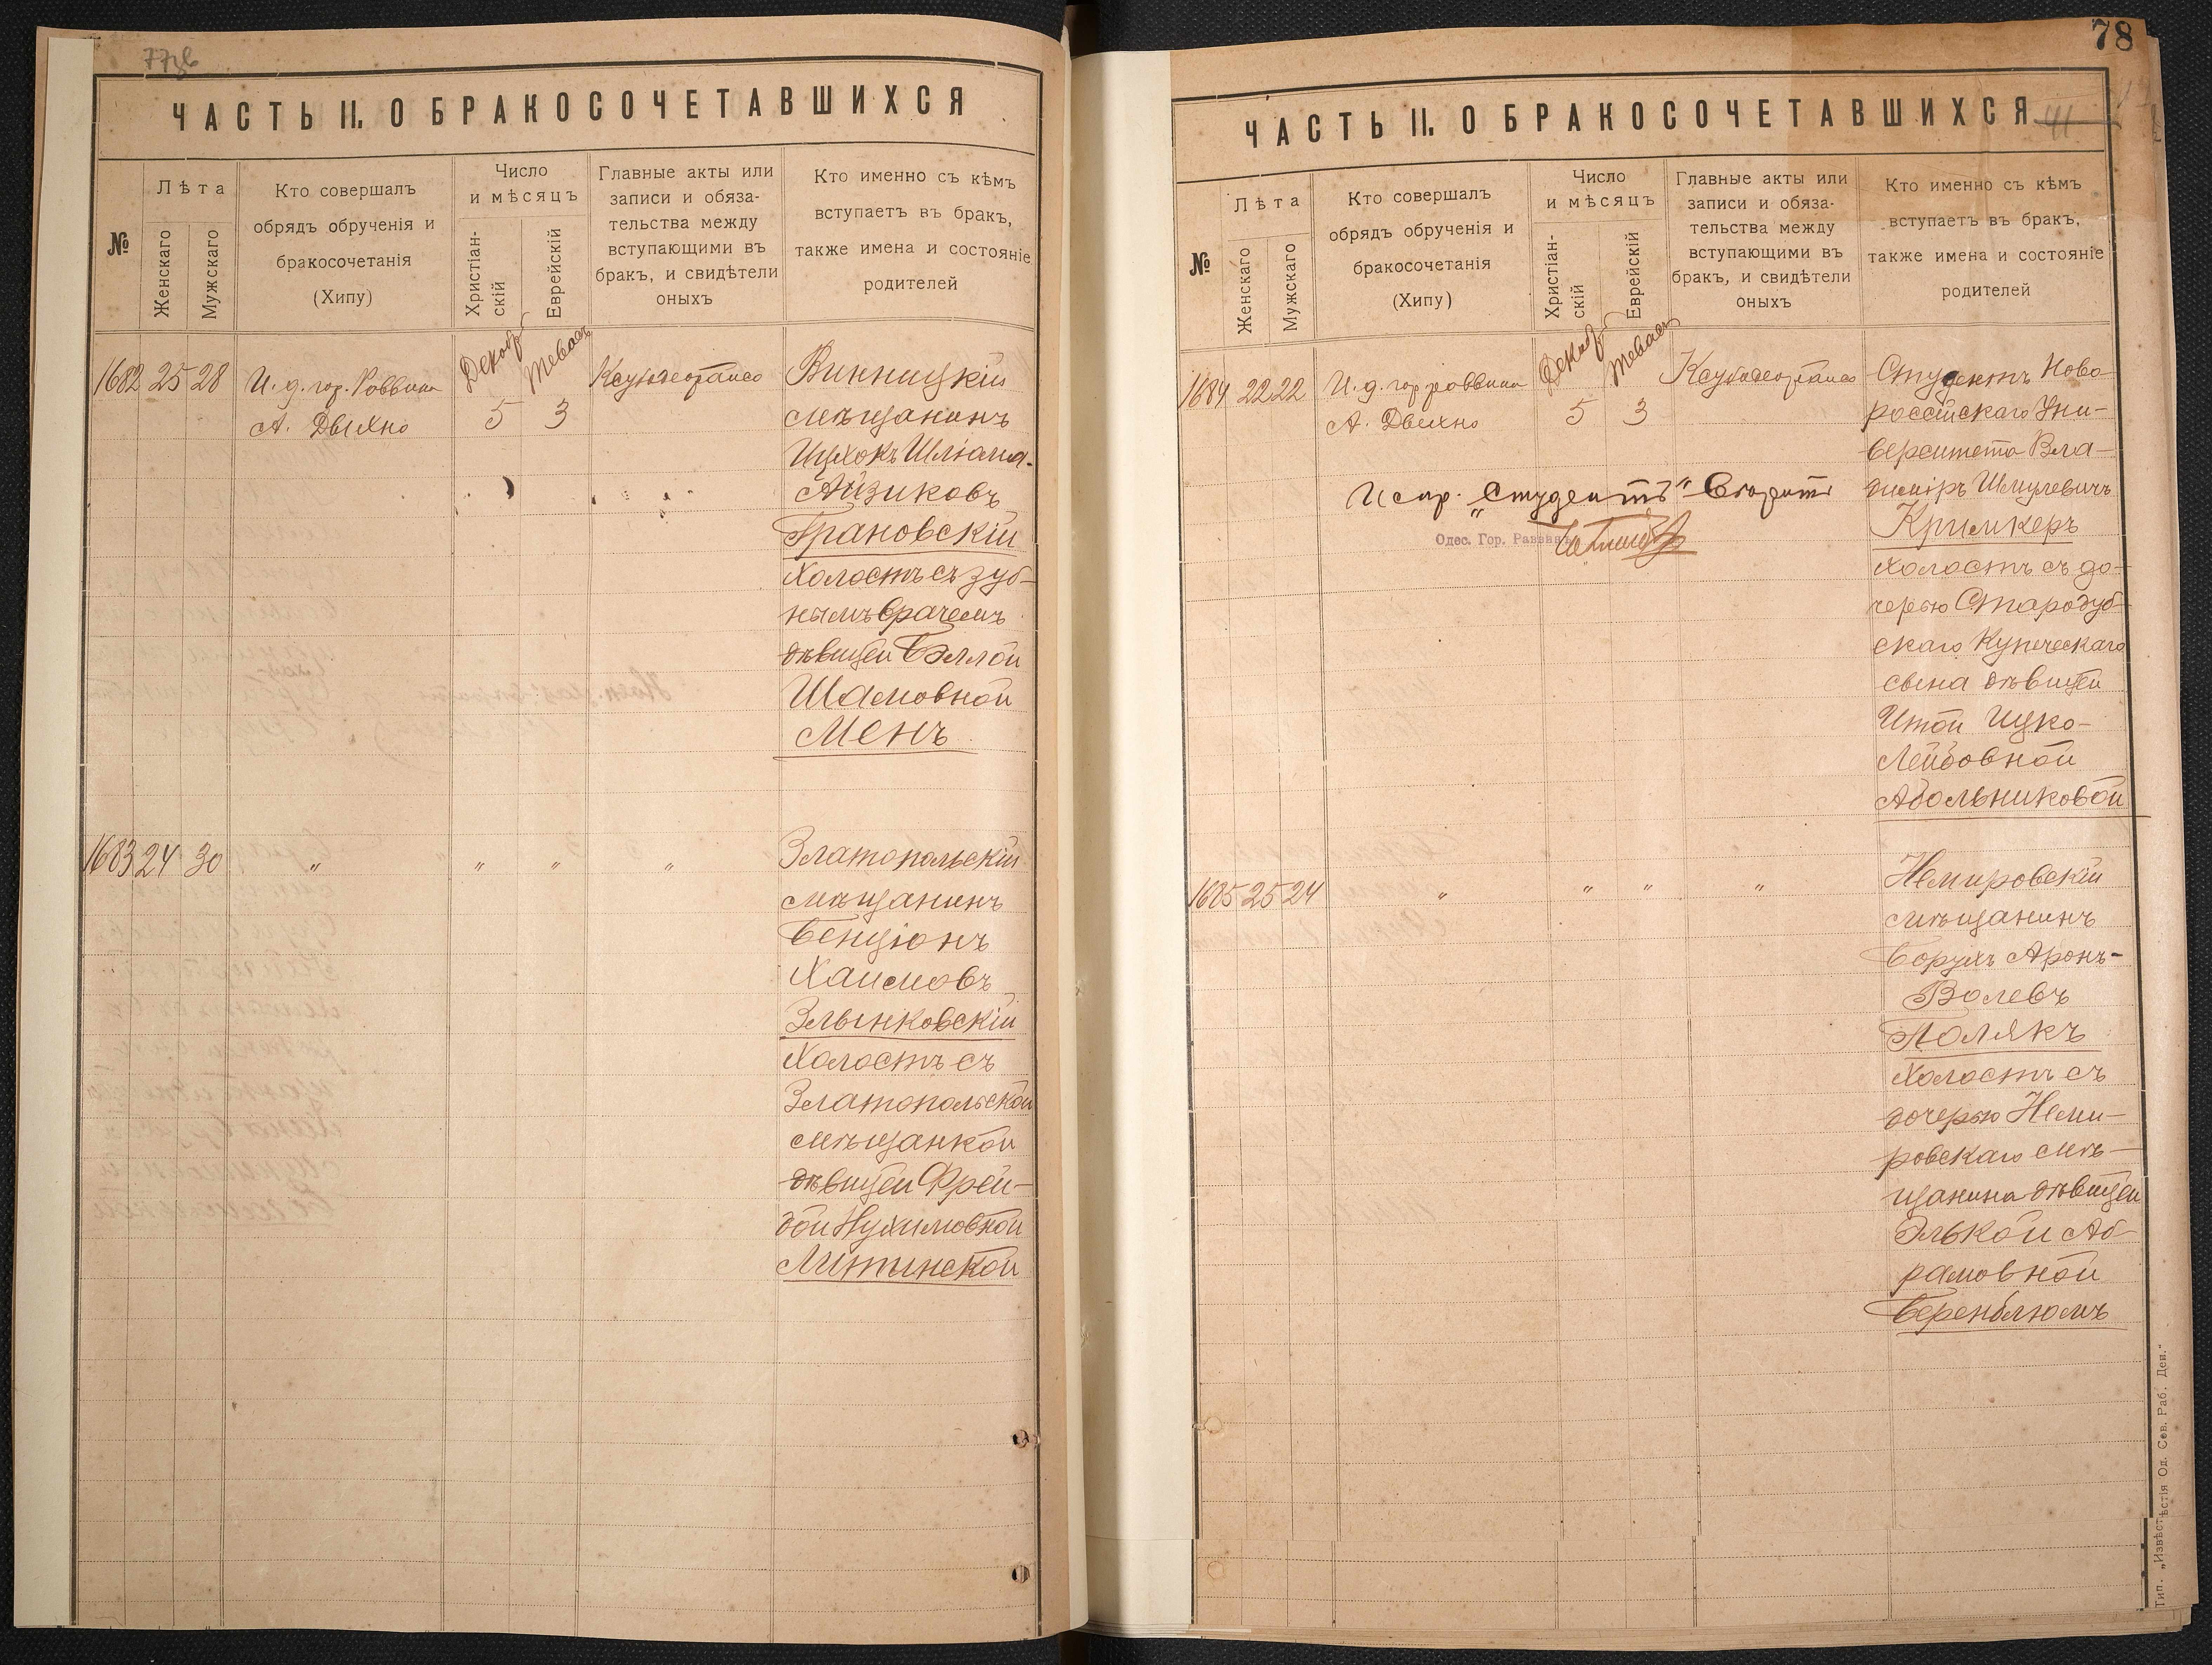 77об
ЧАСТЬ II. О БРАКОСОЧЕТАВШИХСЯ
№
Лѣта
Женскаго
Мужскаго
Кто совершалъ
обрядъ обрученія и
бракосочетанія
(Хипу)
Число
и мѣсяцъ
Христіан-
скій
Еврейскій
Главные акты или
записи и обяза-
тельства между
вступающими въ
бракъ, и свидѣтели
оныхъ
Кто именно съ кѣмъ
вступаетъ въ бракъ,
также имена и состояніе
родителей
1682 25 28
И. д. гор. Раввина
А. Двихно
Декабр
5
Теваса
3
Винницкій
мѣщанинъ
Ицхокъ Шліома-
Айзиковъ
Грановскій
холостъ съ зуб-
нымъ врачемъ
дѣвицей Бэллой
Шамовной
Менъ
1683 24 30 " " " "
Златопольскій
мѣщанинъ
Бенціонъ
Хаимовъ
Злынковскій
холостъ съ
Златопольской
мѣщанкой
дѣвицей Фрей-
дой Нухимовной
Литинской
78
ЧАСТЬ II. О БРАКОСОЧЕТАВШИХСЯ 41
№
Лѣта
Женскаго
Мужскаго
Кто совершалъ
обрядъ обрученія и
бракосочетанія
(Хипу)
Число
и мѣсяцъ
Христіан-
скій
Еврейскій
Главные акты или
записи и обяза-
тельства между
вступающими въ
бракъ, и свидѣтели
оныхъ
Кто именно съ кѣмъ
вступаетъ въ бракъ,
также имена и состояніе
родителей
1684 22 22
И. д. гор. раввина
А. Двихно
Декабр
5
Теваса
3
Испр. „Студентъ"
Одес. Гор. Раввинъ
Студентъ Ново-
россійскаго Уни-
верситета Вла-
диміръ Шмулевичъ
Кримкеръ
холостъ съ до-
черью Стародуб-
скаго Купеческаго
сына дѣвицей
Итой Ицко-
Лейбовной
Абольниковой
1685 25 24 " " " "
Немировскій
мѣщанинъ
Борухъ Аронъ-
Волевъ
Полякъ
холостъ съ
дочерью Неми-
ровскаго мѣ-
щанина дѣвицей
Элькой Аб-
рамовной
Беренблюмъ
Тип. „Извѣстія Од. Сов. Раб. Деп."